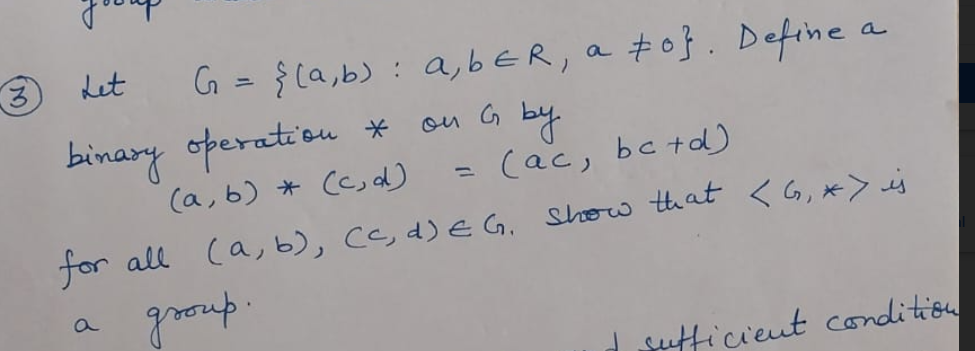 group
③ Let G = {(a,b) : a,b ∈ R, a ≠ 0}. Define a
binary operation * on G by
(a,b) * (c,d) = (ac, bc+d)
for all (a,b), (c,d) ∈ G. Show that <G,*> is
a group.
sufficient condition